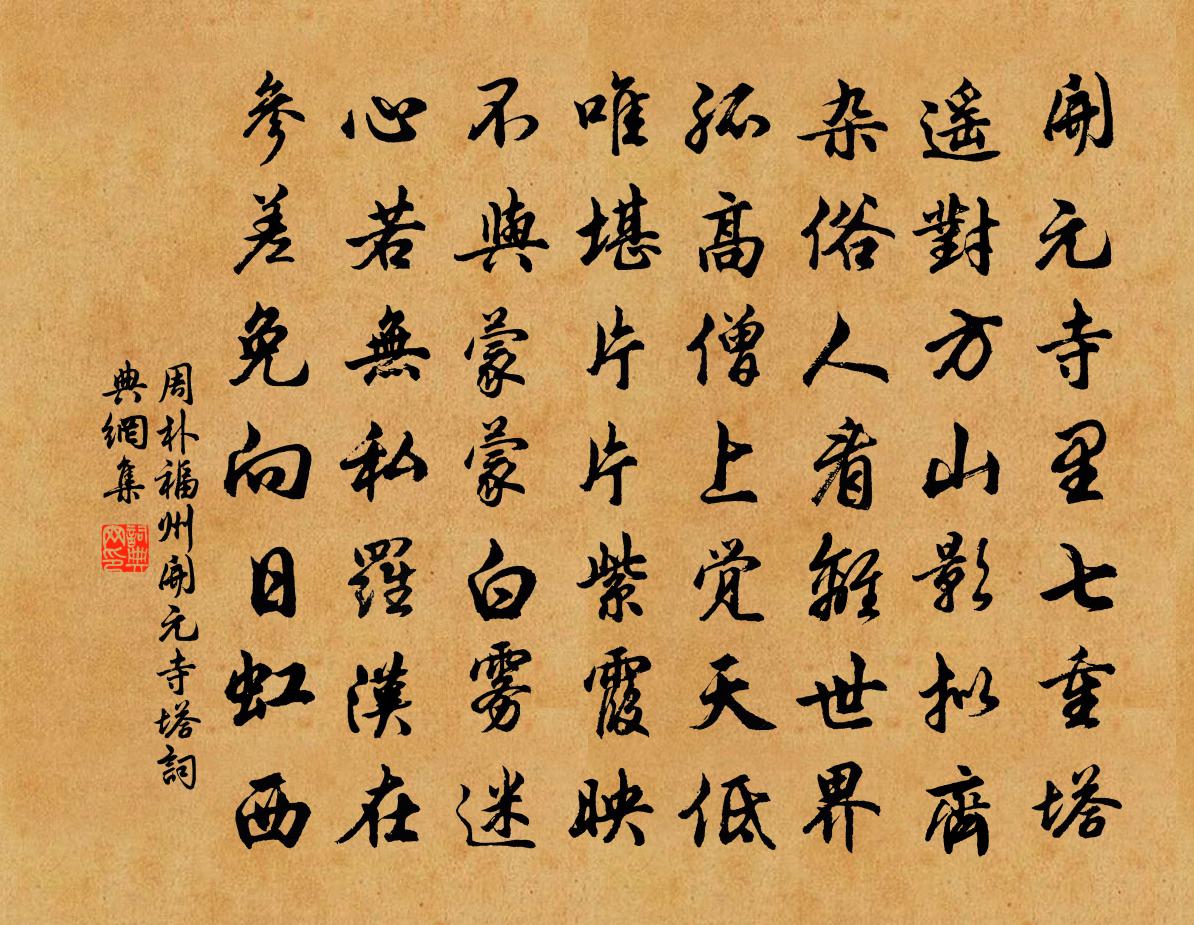 開元寺里七重塔
遥對方山影拟齊
杂俗人看離世界
孤高僧上觉天低
唯堪片片紫霞映
不與蒙蒙白雾迷
心若無私羅漢在
參差免向日虹西
周朴福州開元寺塔詞
典網集
詞典
网印